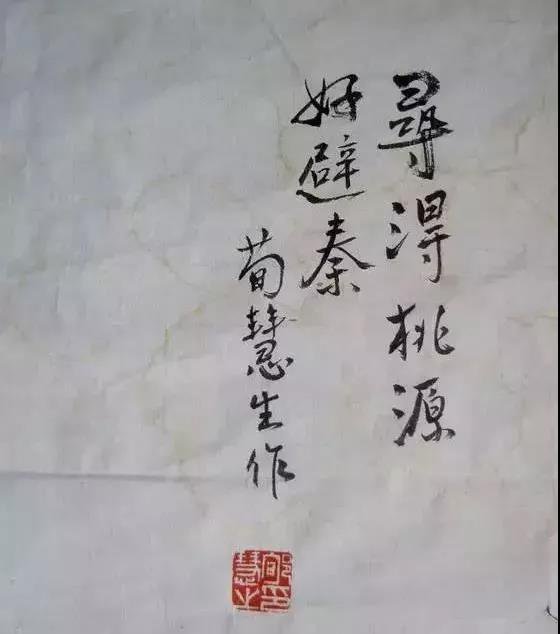 尋得桃源
好避秦
荀慧生作